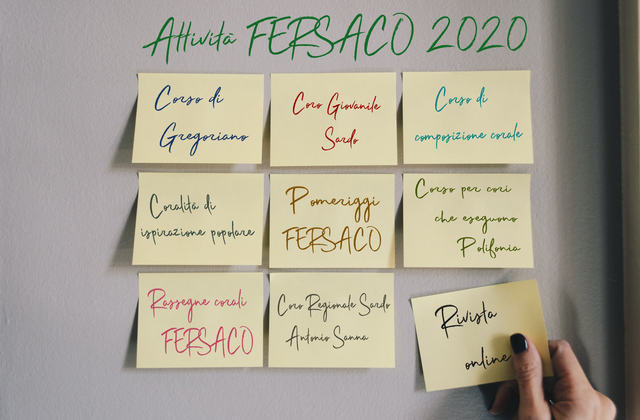 Attività FERSACO 2020
Corso di
Gregoriano
Coro Giovanile
Sardo
Corso di
composizione corale
Coralità di
ispirazione popolare
Pomeriggi
FERSACO
Corso per cori
che eseguono
Polifonia
Rassegne corali
FERSACO
Coro Regionale Sardo
Antonio Sanna
Rivista
online